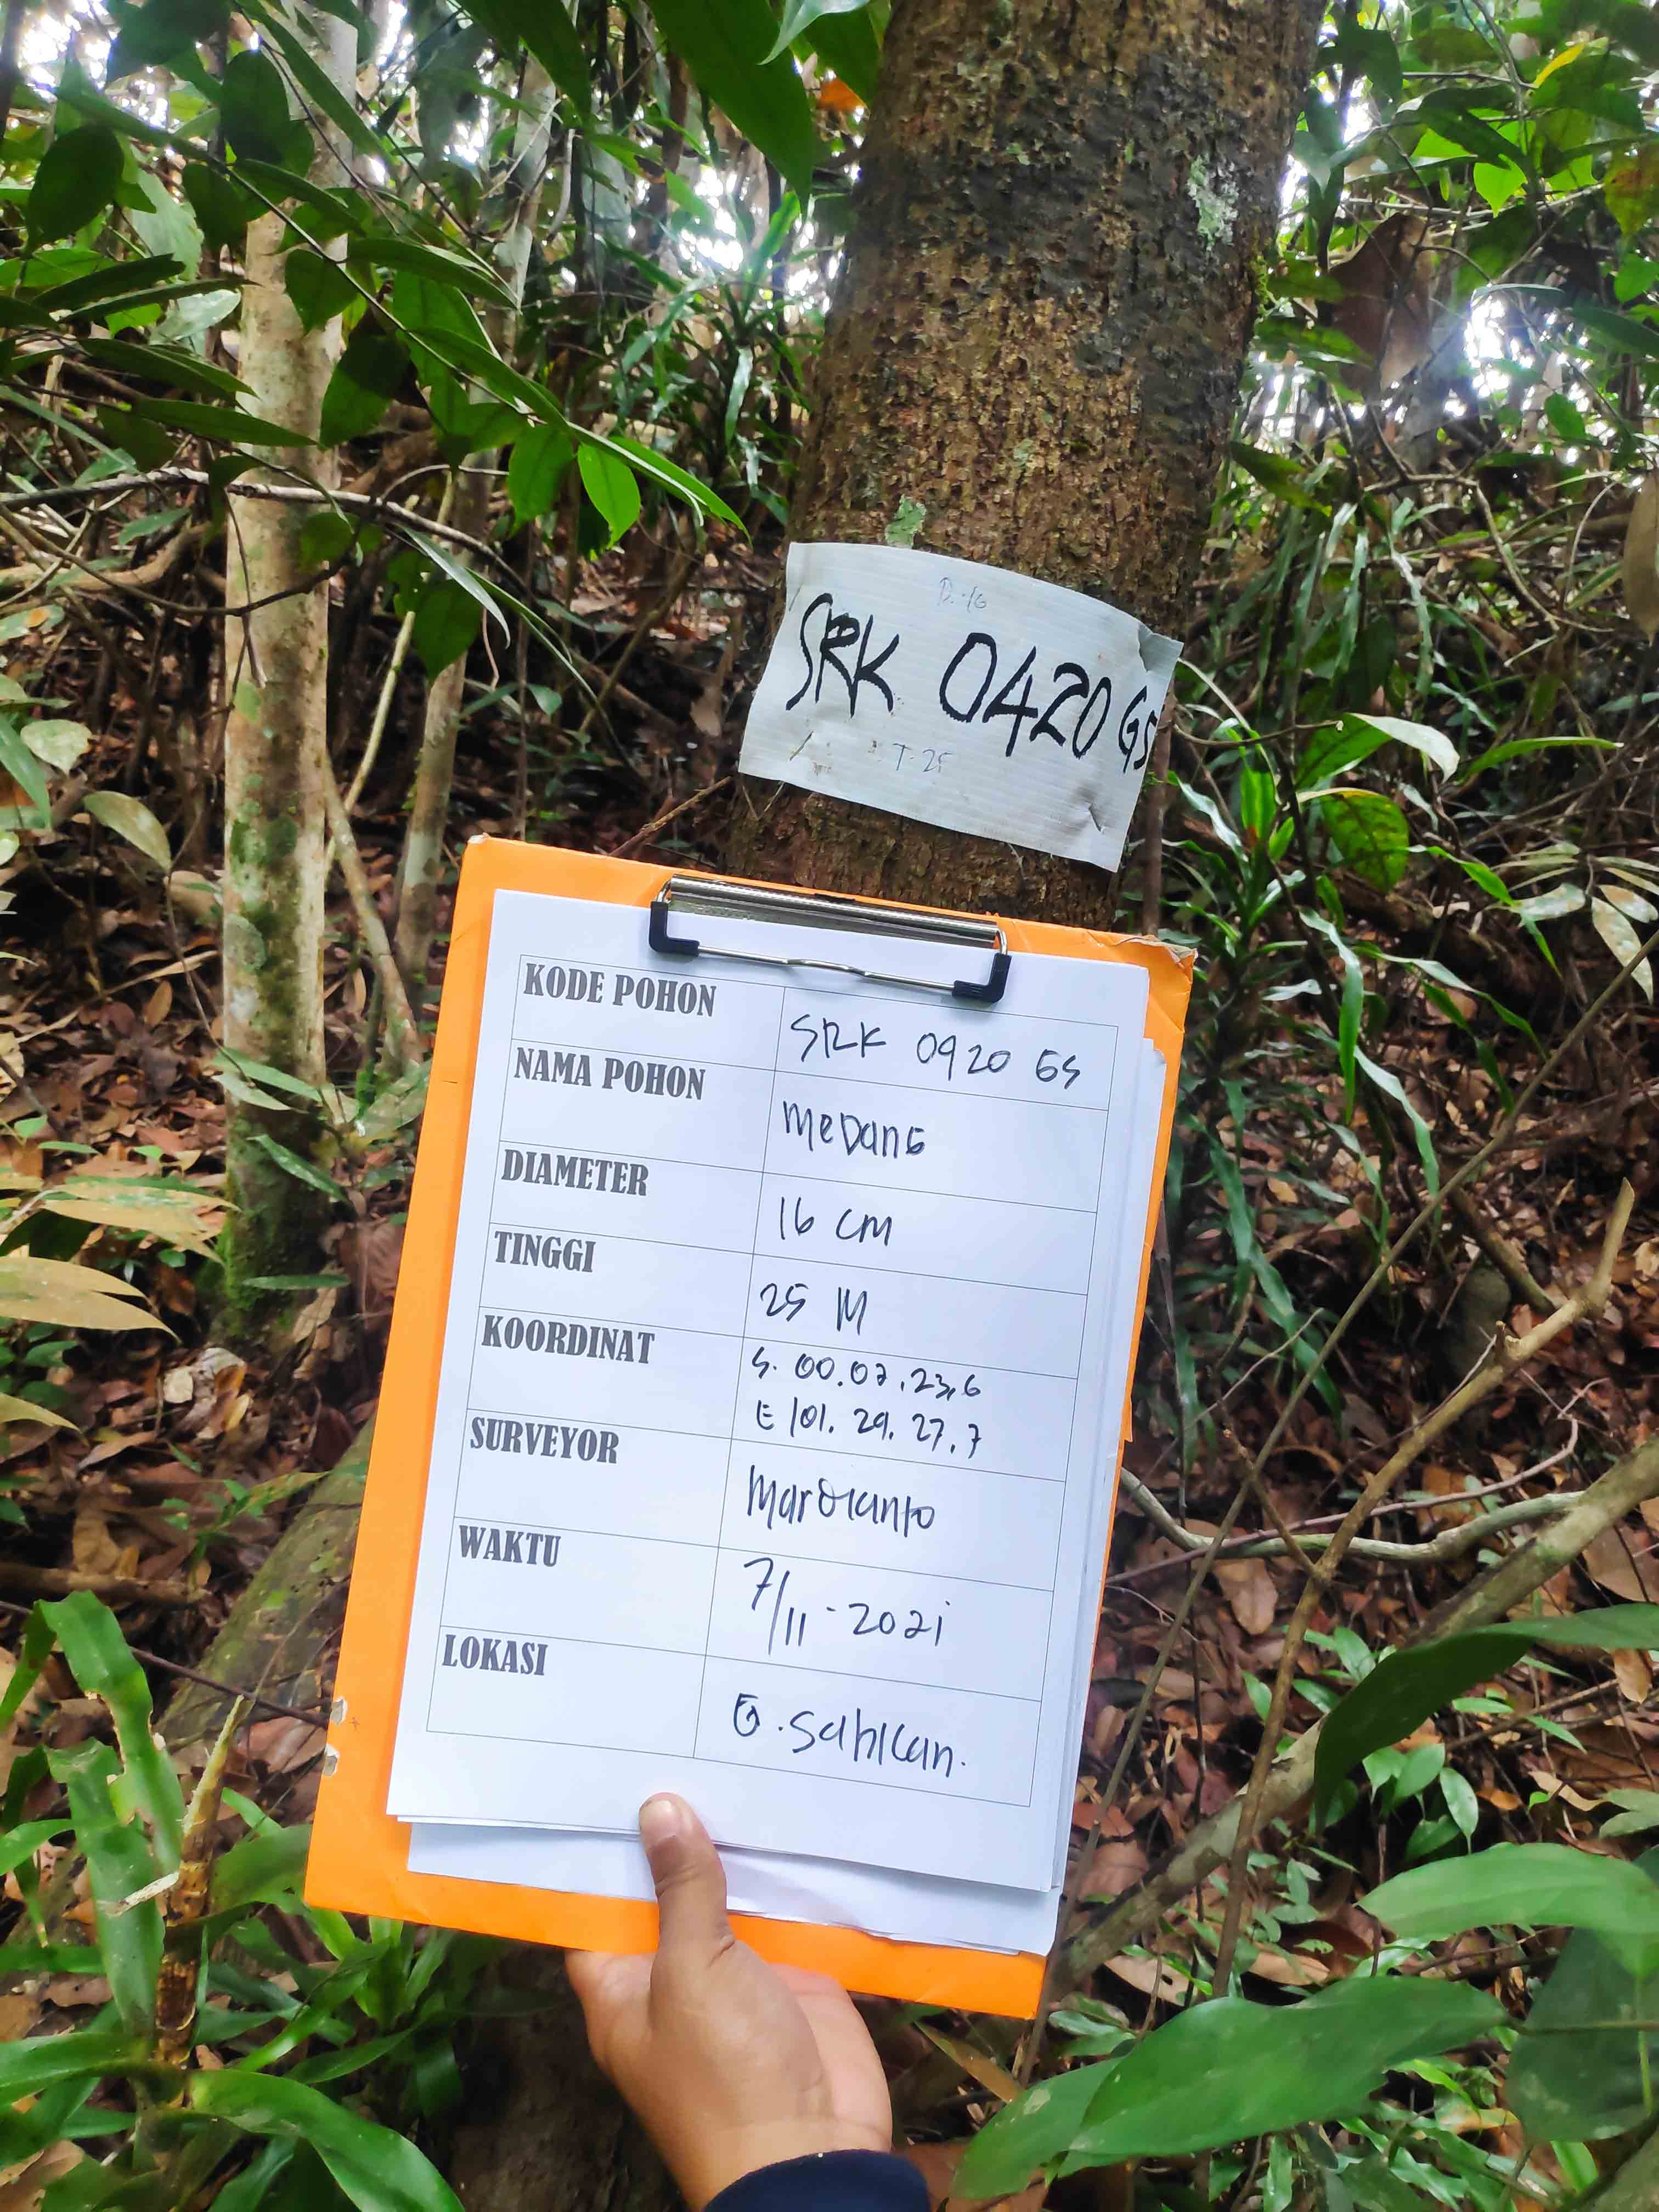 D.16
SRK 0420 GS
T.25
KODE POHON
SRK 0420 GS
NAMA POHON
MeDanG
DIAMETER
16 CM
TINGGI
25 M
KOORDINAT
S. 00.07.23,6
E 101. 29. 27,7
SURVEYOR
Mardianto
WAKTU
7/11-2021
LOKASI
G. Sahilan.